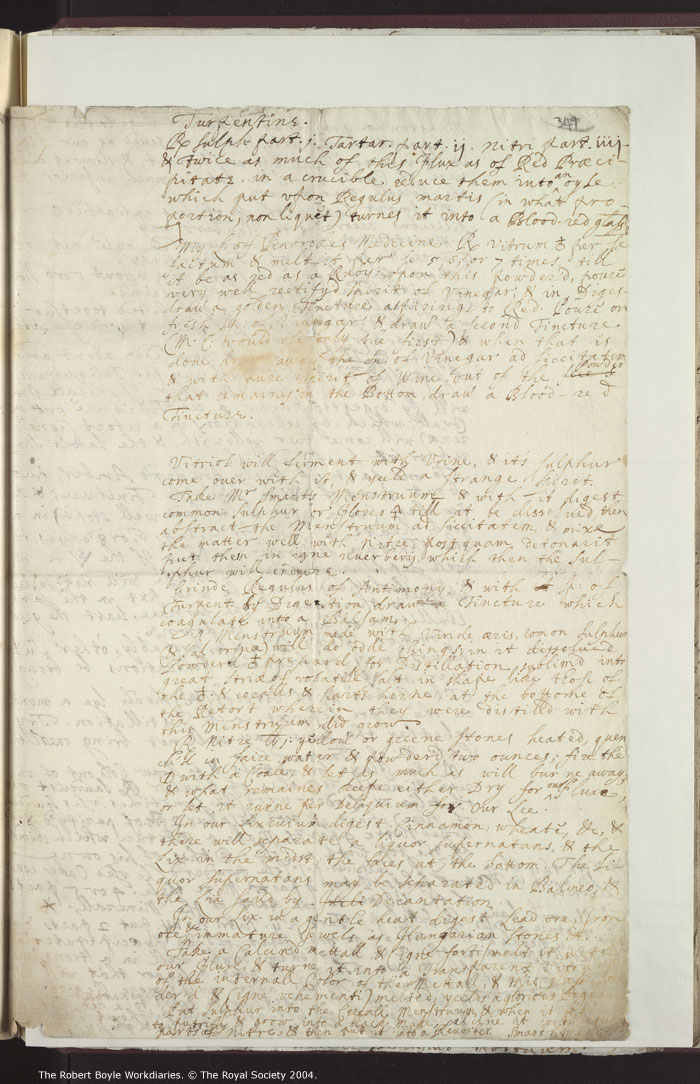 349
Turpentine.
℞ Sulph. part. j. Tartar. part. ij. Nitri part. iiij.
& twice as much of this Flux as of Red Præci-
pitate. in a crucible reduce them into an oyle
which put upon Regulus martis (in what pro-
portion, non liquet) turnes it into a Blood-red glass.
Medicine. ℞ Vitrum ♁ per se
factum & melt it per se 5, 6, or 7 times, till
it be as red as a Ruby: upon this powder'd, poure
very well rectifyd Spirit of Vinegar, & in Diges-
draw a golden Tincture aspiring to Red. Poure on
fresh Vinegar & draw a second Tincture
(M. C. would use only the first) & when that is
done, away the of Vinegar ad siccitatem
& with pure Spirit of Wine, out of the Powder
that remaines in the Bottom, draw a Blood-red
Tincture.
Vitriol will ferment with Urine, & its sulphur
come over with it, & yeild a strange secret.
Take Mr Smarts Menstruum & with it digest
common Sulphur or flores till it be dissolved then
abstract the Menstruum ad siccitatem & mixe
the matter well with Nitre, postquam detonarit
put them in igne reverberij, which then the Sul-
phur will endure.
Grinde Regulus of Antimony & with Sp. of
Turpent. by Digestion draw a Tincture which
coagulate into a Balsam.
Menstruum made with Viride æris, comon Sulphur
& will do odde things; in it dissolved
Powder'd ♁ prepared for Distillation sublim'd into
great striæ of volatile salt in shape like those of
the ♁. & coralls & hartshorne, at the bottome of
the Retort wherein they were distill'd with
this Menstruum did grow.
℞ Nitre yellow or greene stones heated, quen
ch'd in faire water & powder'd two ounces; fire the
with a Coale, & let as much as will burne away,
& what remaines keepe either Dry for our Fluxe,
or let it runne per Deliquium for Our Lee.
In our Lixivium digest Cinnamon, wheate, &c, &
there will separate a liquor supernatans, & the
Lix in the midst, the fæces at the bottom. The Li-
quor supernatans may be separated in Balneo, &
the Lix save by Decantation.
In our Lix in a gentle heat digest Lead ore, Iron
ore, & immature Jewels as Hungarian stones &c.
Take a Calcind mettall & igne forti melt it with
our Fluxe & turne it into a Transparent Vitrum
of the internal Color of the Mettall; & this
der'd & (igne vehementi) melted, yeilds a glorious Regulus
Put Sulphur into the Corall Menstruum, & when it
to putrify & grow into a calcine it with
parts of Nitre, & then put it into a Reverber. Smart
The Robert Boyle Workdiaries. © The Royal Society 2004.